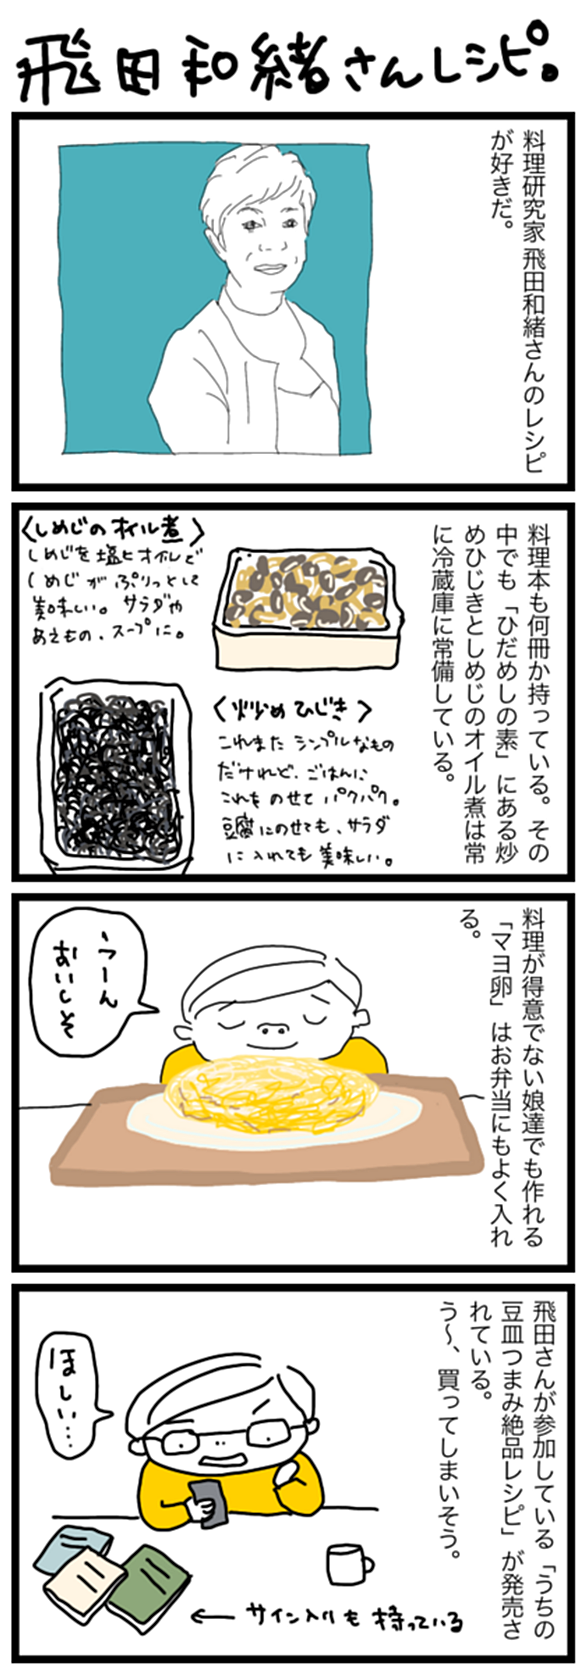 飛田和緒さんレシピ。
料理研究家 飛田和緒さんのレシピ
が好きだ。
料理本も何冊か持っている。その
中でも「ひだめしの素」にある炒
めひじきとしめじのオイル煮は常
に冷蔵庫に常備している。
〈しめじのオイル煮〉
しめじを塩とオイルで
しめじがぷりっとして
美味しい。サラダや
あえもの、スープに。
〈炒めひじき〉
これまたシンプルなもの
だけれど、ごはんに
これをのせてパクパク。
豆腐にのせても、サラダ
に入れても美味しい。
料理が得意でない娘達でも作れる
「マヨ卵」はお弁当にもよく入れ
る。
うーん
おいしそ
飛田さんが参加している「うちの
豆皿つまみ絶品レシピ」が発売さ
れている。
う〜、買ってしまいそう。
ほしい…
← サイン入りも持っている